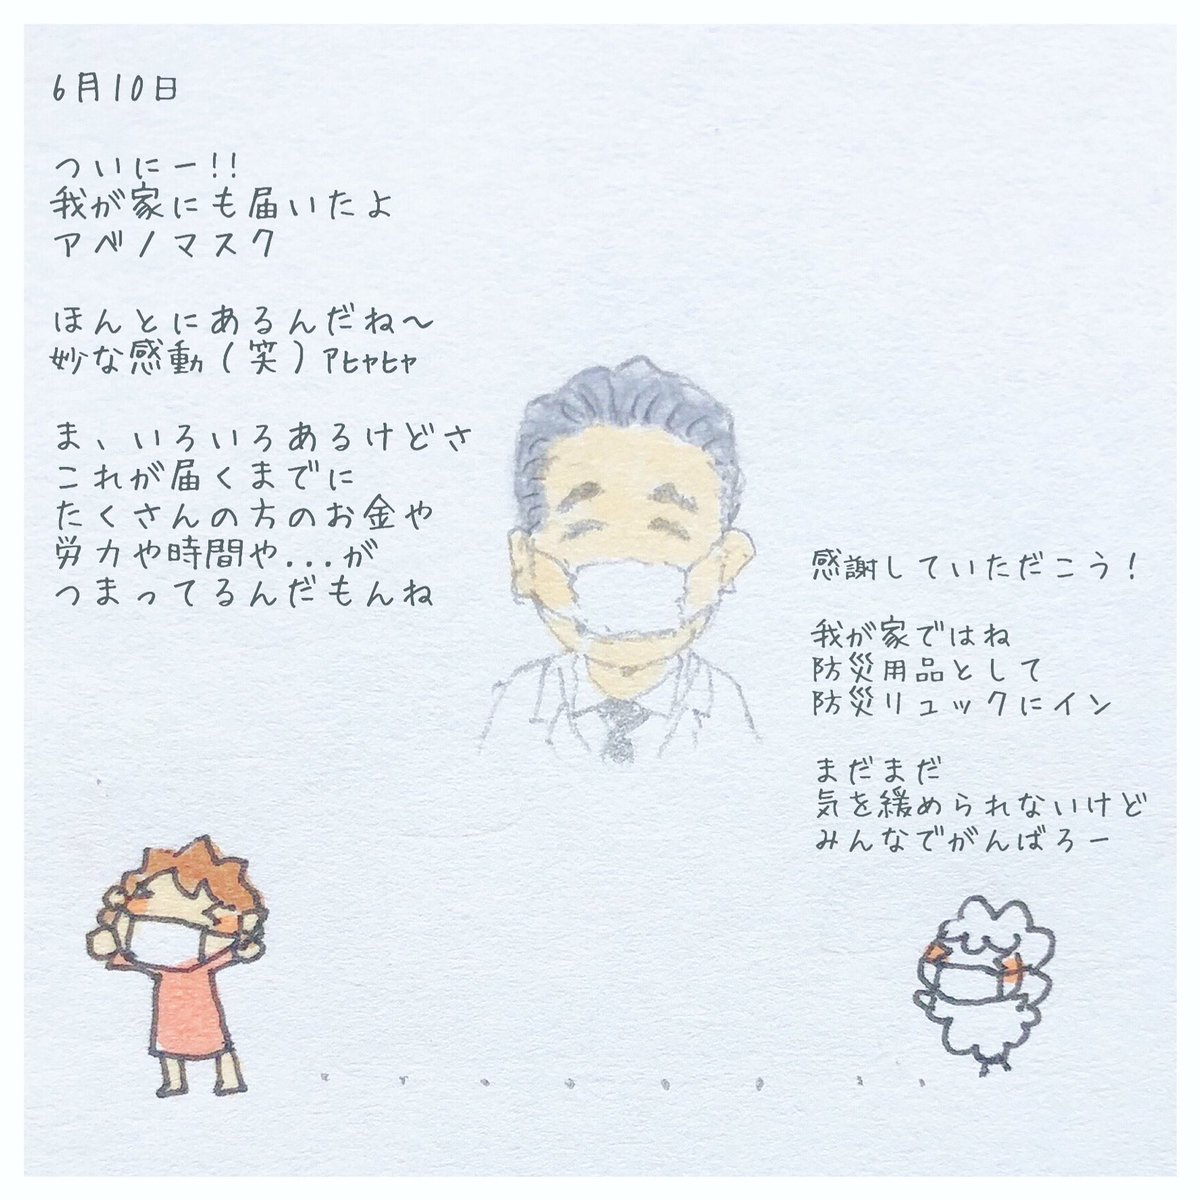 6月10日
ついにー!!
我が家にも届いたよ
アベノマスク
ほんとにあるんだね〜
妙な感動(笑)ｱﾋｬﾋｬ
ま、いろいろあるけどさ
これが届くまでに
たくさんの方のお金や
労力や時間や...が
つまってるんだもんね
感謝していただこう!
我が家ではね
防災用品として
防災リュックにイン
まだまだ
気を緩められないけど
みんなでがんばろー